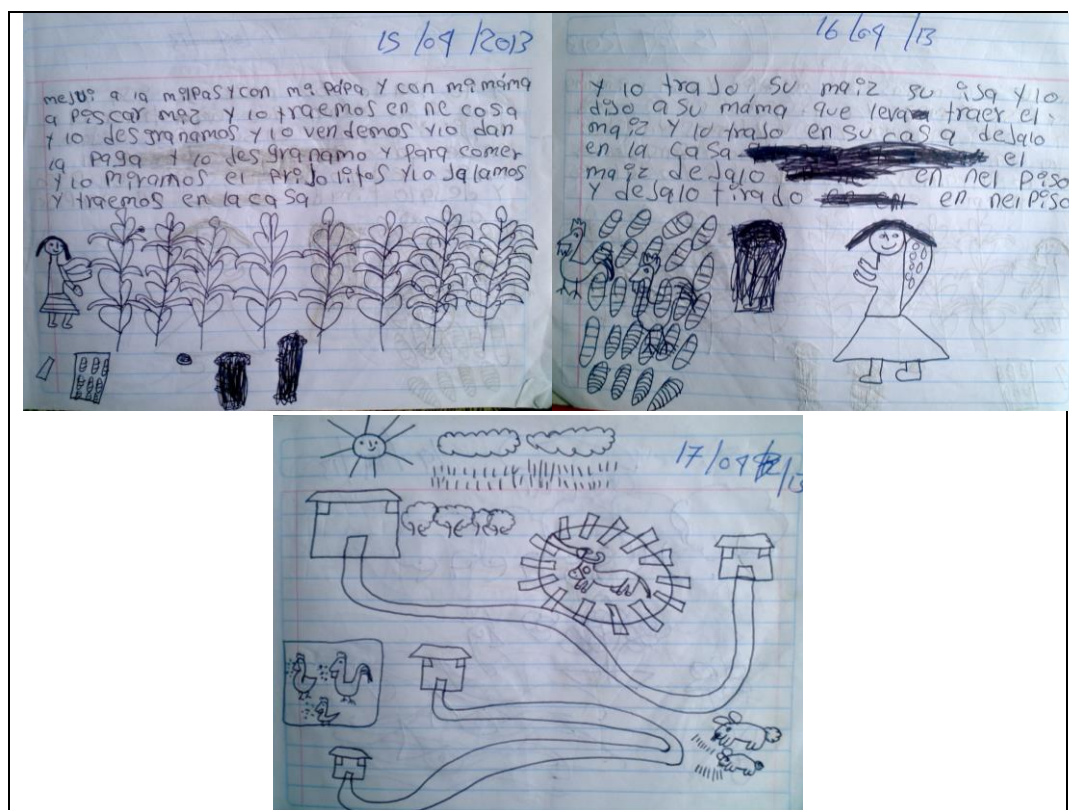 15/04/2013
me jui a la milpas y con mi papa y con mi máma
a Piscar miz y lo traemos en ne cosa
y lo desgranamos y lo vendemos ylo dan
la Paga y lo desgranamo y para comer
y lo miramos el frijolitos y lo jalamos
y traemos en la casa
16/04/13
y lo trajo su maiz su isa y lo
dijo a su máma que leva traer el
maiz y lo trajo en su casa dejalo
en la casa el
maiz dejalo en nel piso
y dejalo tirado en nel Piso
17/04/13